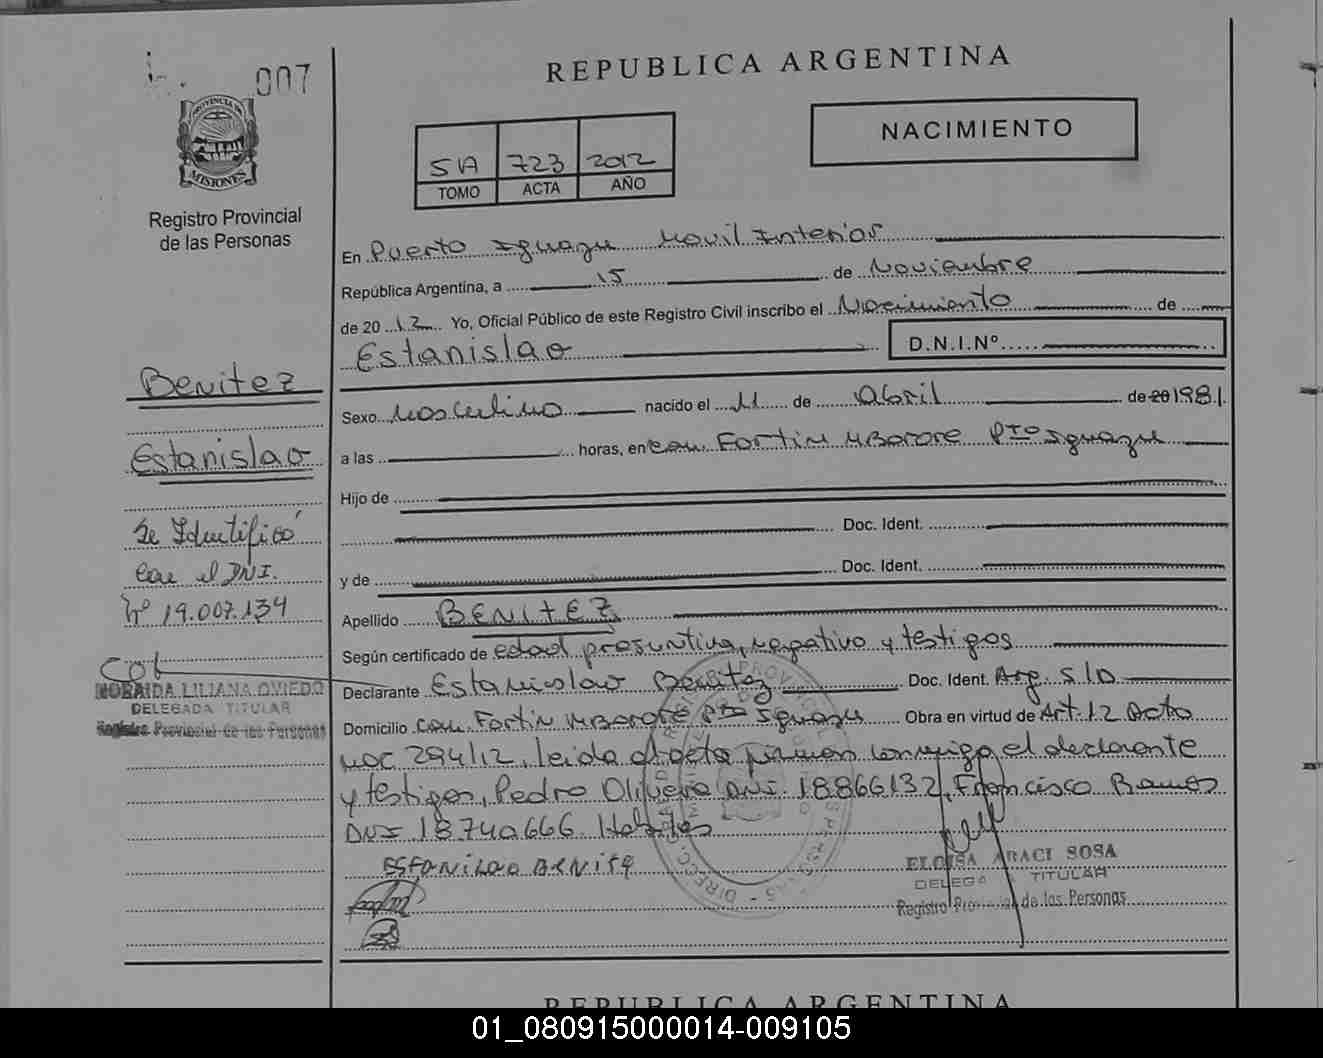 007
REPUBLICA ARGENTINA
PROVINCIA DE
MISIONES
Registro Provincial
de las Personas
5 A 723 2012
TOMO ACTA AÑO
NACIMIENTO
En Puerto Iguazu Movil Interior
República Argentina, a 15 de Noviembre
de 20 12 Yo, Oficial Público de este Registro Civil inscribo el Nacimiento de
Estanislao D.N.I.Nº
Benitez
Estanislao
Se Identificó
con el DNI.
Nº 19.007.134
NORAIDA LILIANA OVIEDO
DELEGADA TITULAR
Registro Provincial de las Personas
Sexo Masculino nacido el 11 de Abril de 20 1981.
a las horas, en Com Fortin Mborore Pto Iguazu
Hijo de
Doc. Ident.
y de Doc. Ident.
Apellido BENITEZ
Según certificado de edad presuntiva, negativo y testigos
Declarante Estanislao Benitez Doc. Ident. Arg. S/D
Domicilio Com. Fortin Mborore Pto Iguazu Obra en virtud de Art. 12 Acto
294/12, leida el acta firman conmigo el declarante
y testigos, Pedro Olivera DNI: 18866132, Francisco Ramos
DNI 18740666.
ESTANILAO BENITE
ELOISA ARACI SOSA
DELEGADA TITULAR
Registro Provincial de las Personas
REPUBLICA ARGENTINA
01_080915000014-009105